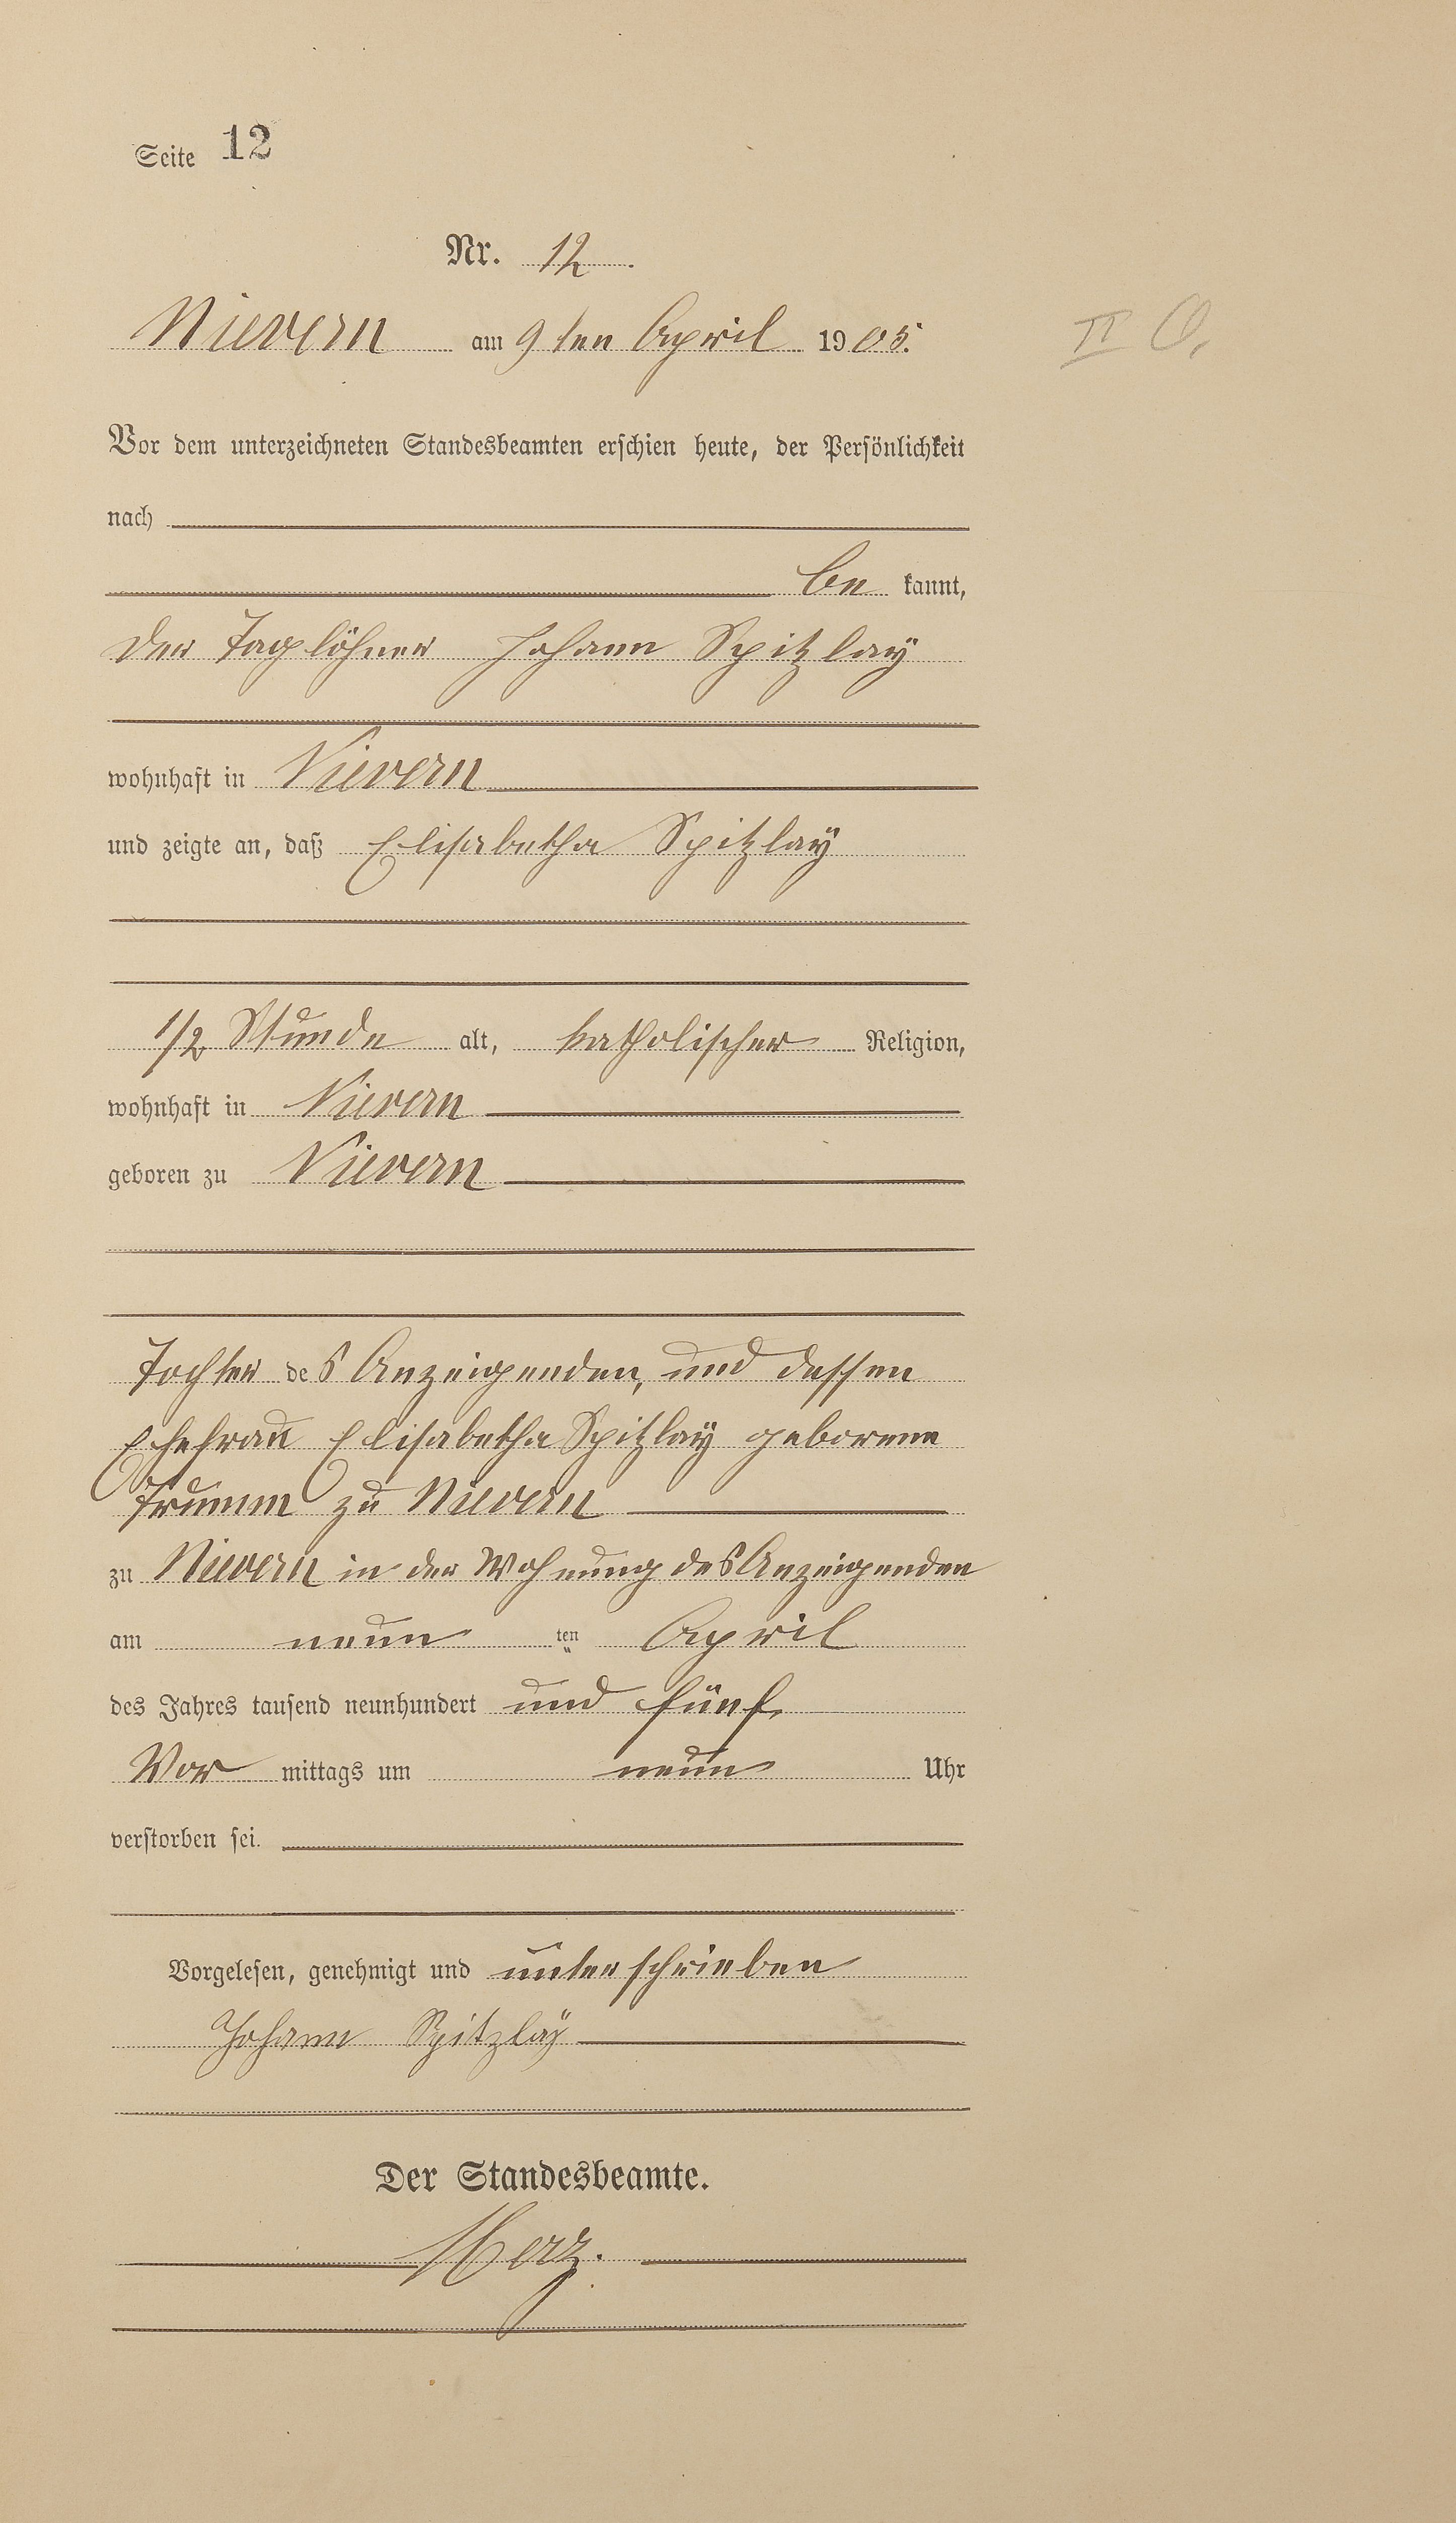 Seite 12
Nr. 12.
Nievern am 9ten April 1905.
II O.
Vor dem unterzeichneten Standesbeamten erschien heute, der Persönlichkeit
nach
be kannt,
der Taglöhner Johann Spitzlay
wohnhaft in Nievern
und zeigte an, daß Elisabetha Spitzlay
1/2 Stunde alt, katholischer Religion,
wohnhaft in Nievern
geboren zu Nievern
Tochter des Anzeigenden, und dessen
Ehefrau Elisabetha Spitzlay geborene
Trumm zu Nievern
zu Nievern in der Wohnung des Anzeigenden
am neun ten April
des Jahres tausend neunhundert und fünf,
Vor mittags um neun Uhr
verstorben sei.
Vorgelesen, genehmigt und unterschrieben
Johann Spitzlay
Der Standesbeamte.
Herz.